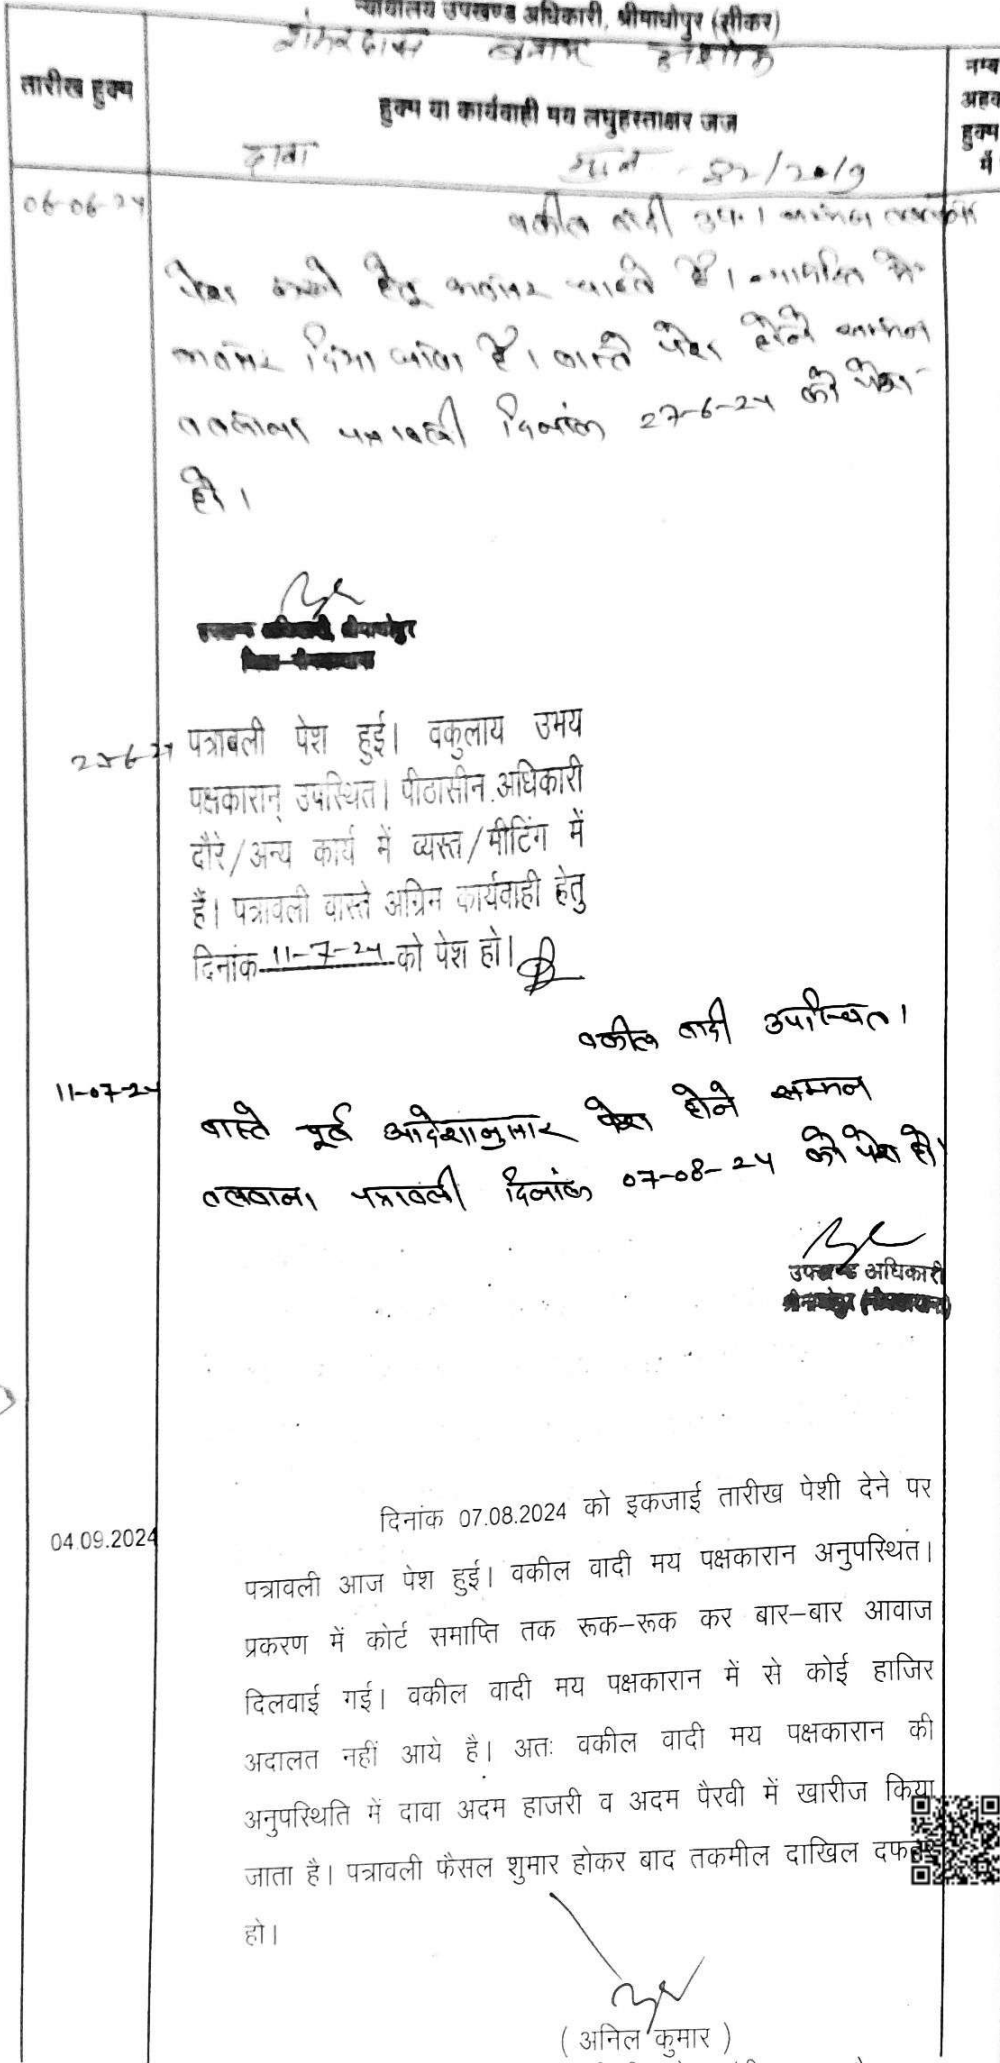 न्यायालय उपखण्ड अधिकारी, श्रीमाधोपुर (सीकर)
बनाम
तारीख हुक्म
हुक्म या कार्यवाही मय लघुहस्ताक्षर जज
नम्ब
अहक
हुक्म
में
दावा
82/2019
06-06-24
वकील वादी उप.।
पेश करने हेतु अवसर चाहते है।
अवसर दिया जाता है। वास्ते पेश होने सम्मन
तलवाना पत्रावली दिनांक 27-6-24 को पेश
हो।
उपखण्ड अधिकारी, श्रीमाधोपुर
पत्रावली पेश हुई। वकुलाय उभय
पक्षकारान् उपस्थित। पीठासीन अधिकारी
दौरे/अन्य कार्य में व्यस्त/मीटिंग में
हैं। पत्रावली वास्ते अग्रिन कार्यवाही हेतु
दिनांक 11-7-24 को पेश हो।
वकील वादी उपस्थित।
11-07-24
वास्ते पूर्व आदेशानुसार पेश होने सम्मन
तलवाना पत्रावली दिनांक 07-08-24 को पेश हो।
उपखण्ड अधिकारी
दिनांक 07.08.2024 को इकजाई तारीख पेशी देने पर
04.09.2024
पत्रावली आज पेश हुई। वकील वादी मय पक्षकारान अनुपस्थित।
प्रकरण में कोर्ट समाप्ति तक रूक-रूक कर बार-बार आवाज
दिलवाई गई। वकील वादी मय पक्षकारान में से कोई हाजिर
अदालत नहीं आये है। अतः वकील वादी मय पक्षकारान की
अनुपस्थिति में दावा अदम हाजरी व अदम पैरवी में खारीज किया
जाता है। पत्रावली फैसल शुमार होकर बाद तकमील दाखिल दफतर
हो।
( अनिल कुमार )